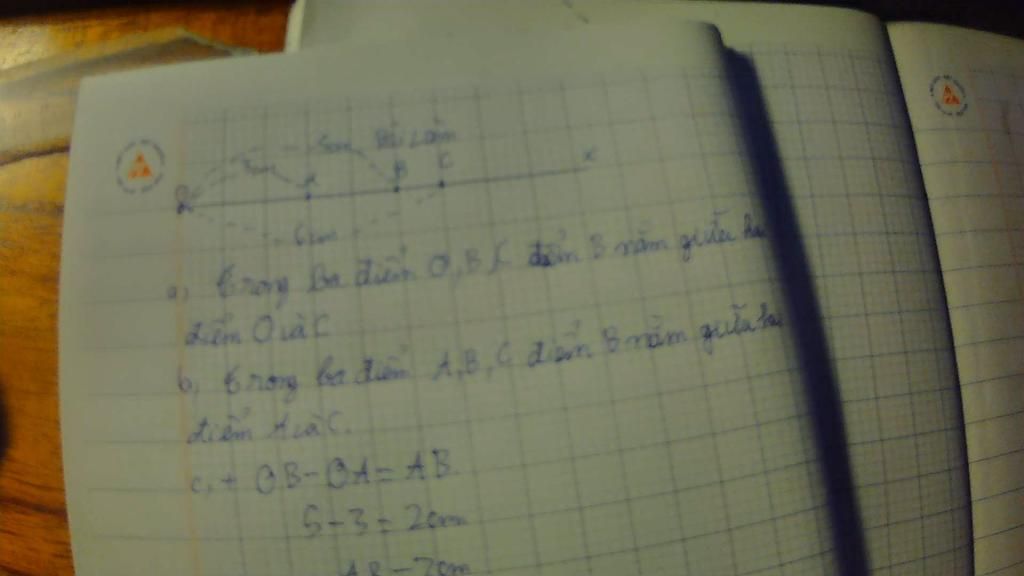 5cm Bài Làm
3cm A B C x
O
6cm
a, trong ba điểm O, B, C điểm B nằm giữa hai
điểm O và C
b, trong ba điểm A, B, C điểm B nằm giữa hai
điểm A và C.
c, + OB - OA = AB
5 - 3 = 2cm
AB = 2cm